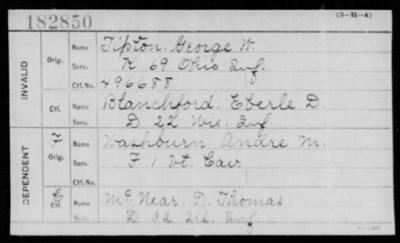 182850
(3-H-4)
INVALID
Orig. Name Tipton. George W.
Serv. K 69 Ohio Inf.
Ctf. No. 496688
Ctf. Name Blanchford. Eberle D.
Serv. D 22 Wis. Inf
DEPENDENT
Orig. Name Washbourn Andre M.
Serv. F 1 Vt. Cav.
Ctf. No.
Name McNear. D. Thomas
Serv. Inf